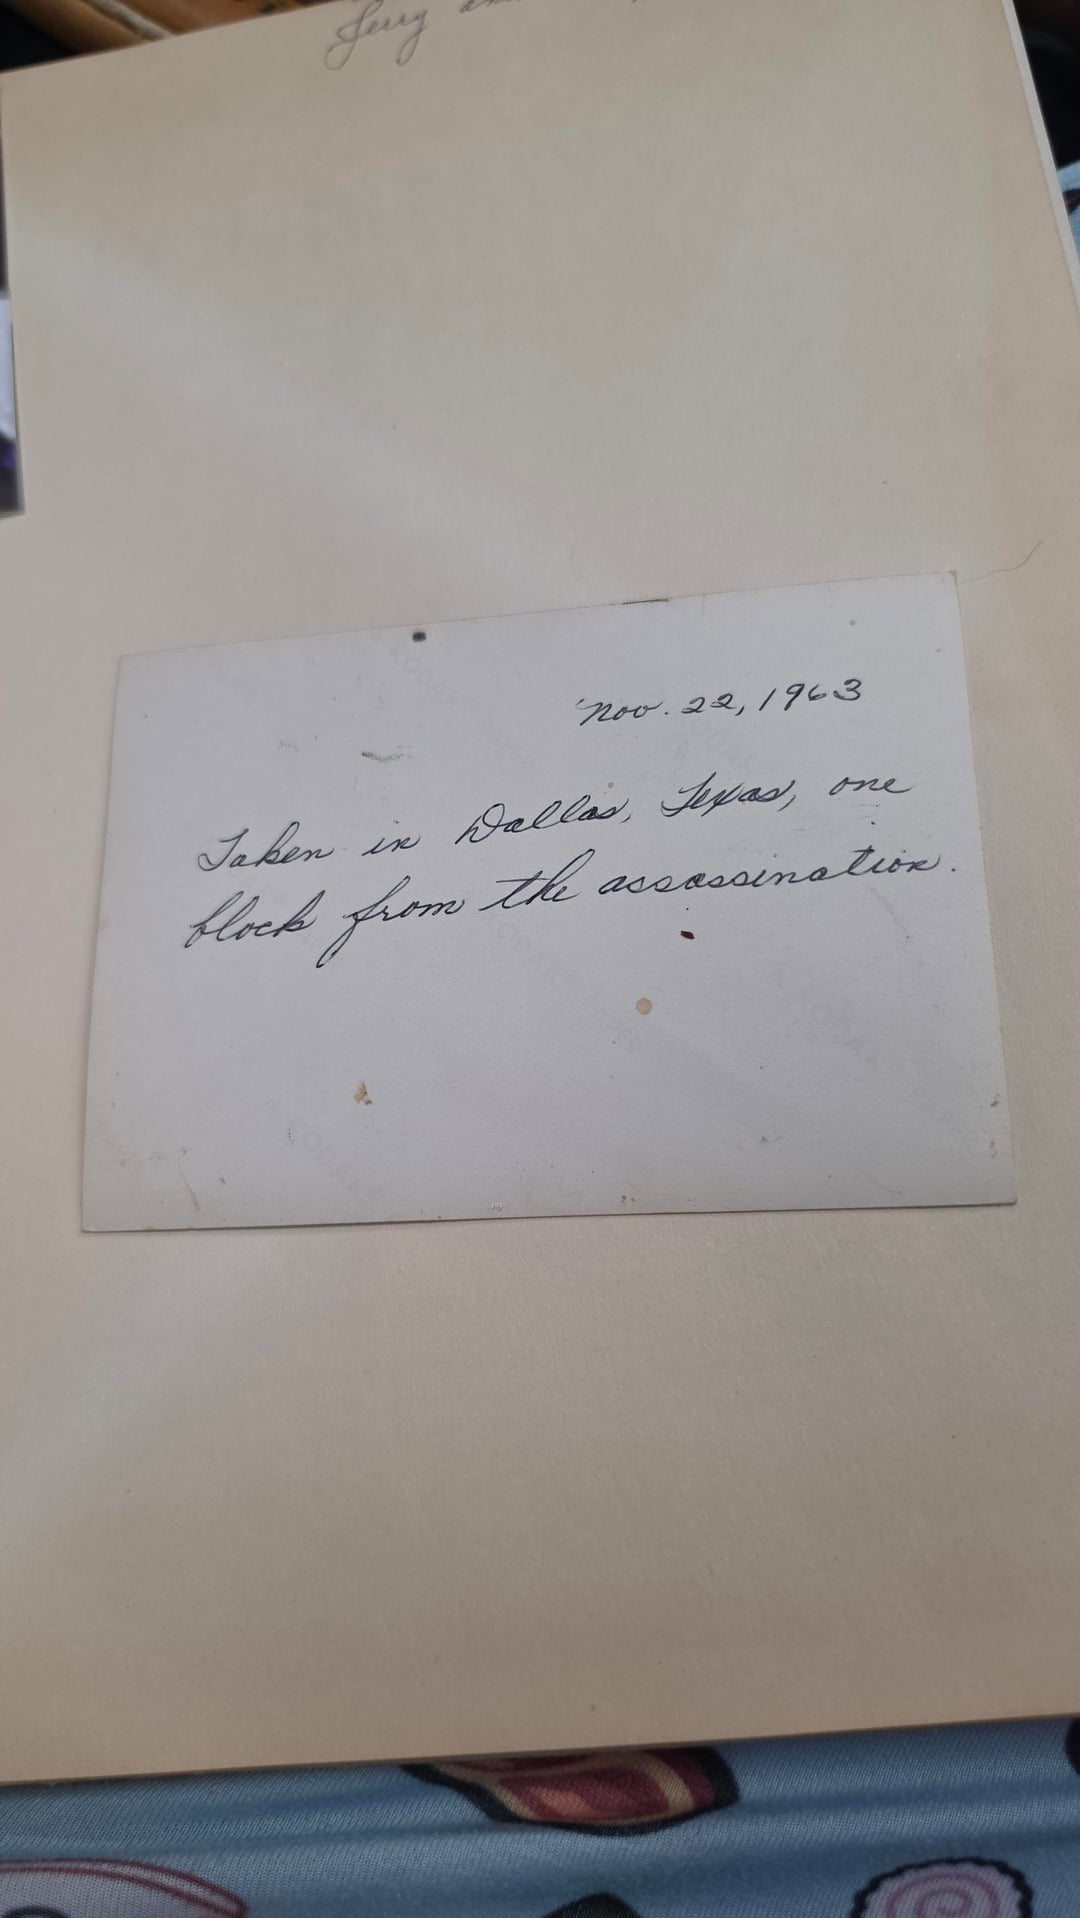 Jerry
Nov. 22, 1963
Taken in Dallas, Texas, one
block from the assassination.